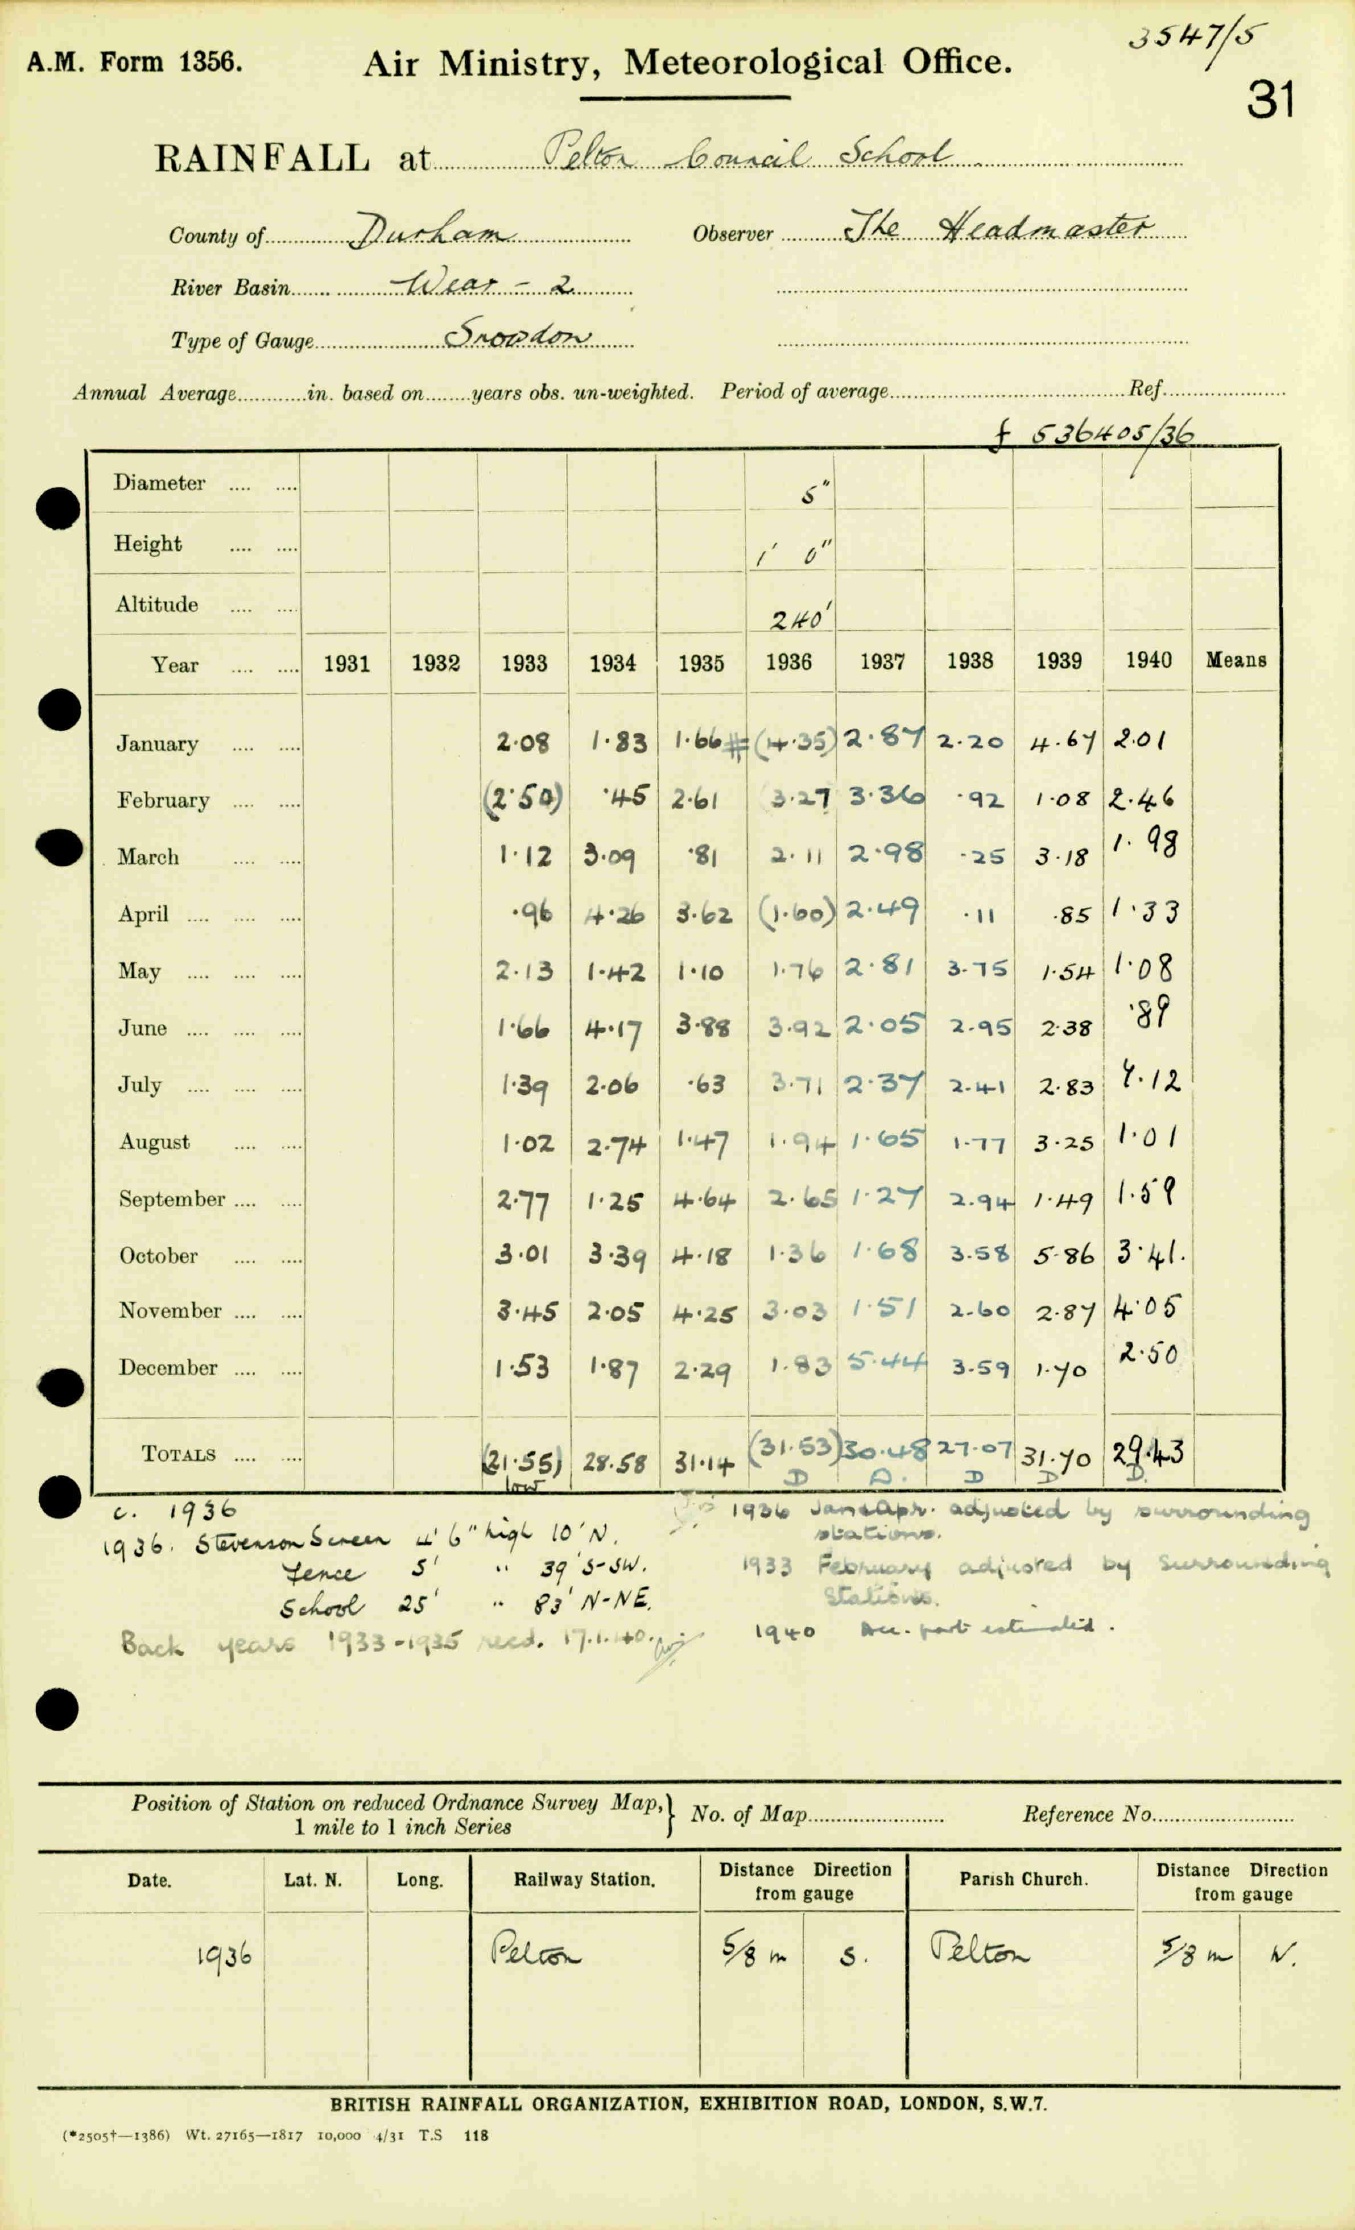 3547/5
A.M. Form 1356. Air Ministry, Meteorological Office.
31
RAINFALL at Pelton Council School
County of Durham Observer The Headmaster
River Basin Wear - 2
Type of Gauge Snowdon
Annual Average in. based on years obs. un-weighted. Period of average Ref.
f 536405/36
Diameter 5"
Height 1' 0"
Altitude 240'
Year 1931 1932 1933 1934 1935 1936 1937 1938 1939 1940 Means
January 2.08 1.83 1.66 # (4.35) 2.87 2.20 4.67 2.01
February (2.50) .45 2.61 3.27 3.36 .92 1.08 2.46
March 1.12 3.09 .81 2.11 2.98 .25 3.18 1.98
April .96 4.26 3.62 (1.60) 2.49 .11 .85 1.33
May 2.13 1.42 1.10 1.76 2.81 3.75 1.54 1.08
June 1.66 4.17 3.88 3.92 2.05 2.95 2.38 .89
July 1.39 2.06 .63 3.71 2.37 2.41 2.83 7.12
August 1.02 2.74 1.47 1.94 1.65 1.77 3.25 1.01
September 2.77 1.25 4.64 2.65 1.27 2.94 1.49 1.59
October 3.01 3.39 4.18 1.36 1.68 3.58 5.86 3.41.
November 3.45 2.05 4.25 3.03 1.51 2.60 2.87 4.05
December 1.53 1.87 2.29 1.83 5.44 3.59 1.70 2.50
TOTALS (21.55) 28.58 31.14 (31.53) 30.48 27.07 31.70 29.43
low D D. D D D.
c. 1936
1936. Stevenson Screen 4' 6" high 10' N.
Fence 5' " 39' S-SW.
School 25' " 83' N-NE.
Back years 1933-1935 recd. 17.1.40.
1936 Jan & Apr. adjusted by surrounding
stations.
1933 February adjusted by surrounding
stations.
1940 part estimated.
Position of Station on reduced Ordnance Survey Map,} No. of Map Reference No.
1 mile to 1 inch Series
Date. Lat. N. Long. Railway Station. Distance Direction from gauge Parish Church. Distance Direction from gauge
1936 Pelton 5/8 m S. Pelton 5/8 m W.
BRITISH RAINFALL ORGANIZATION, EXHIBITION ROAD, LONDON, S.W.7.
(*2505†—1386) Wt. 27165—1817 10,000 4/31 T.S 118